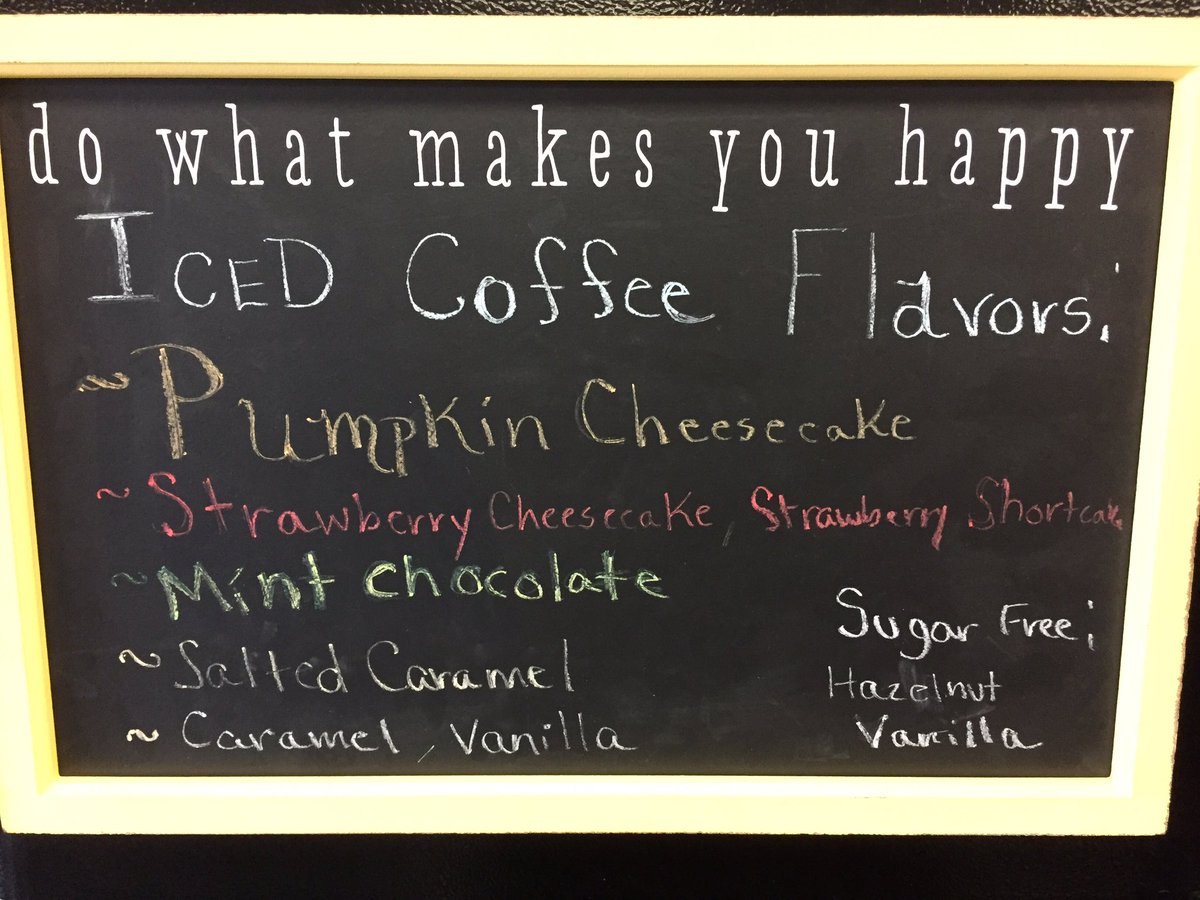 do what makes you happy
ICED Coffee Flavors:
~ Pumpkin Cheesecake
~ Strawberry Cheesecake, Strawberry Shortcake
~ Mint chocolate
~ Salted Caramel
~ Caramel, Vanilla
Sugar Free:
Hazelnut
Vanilla